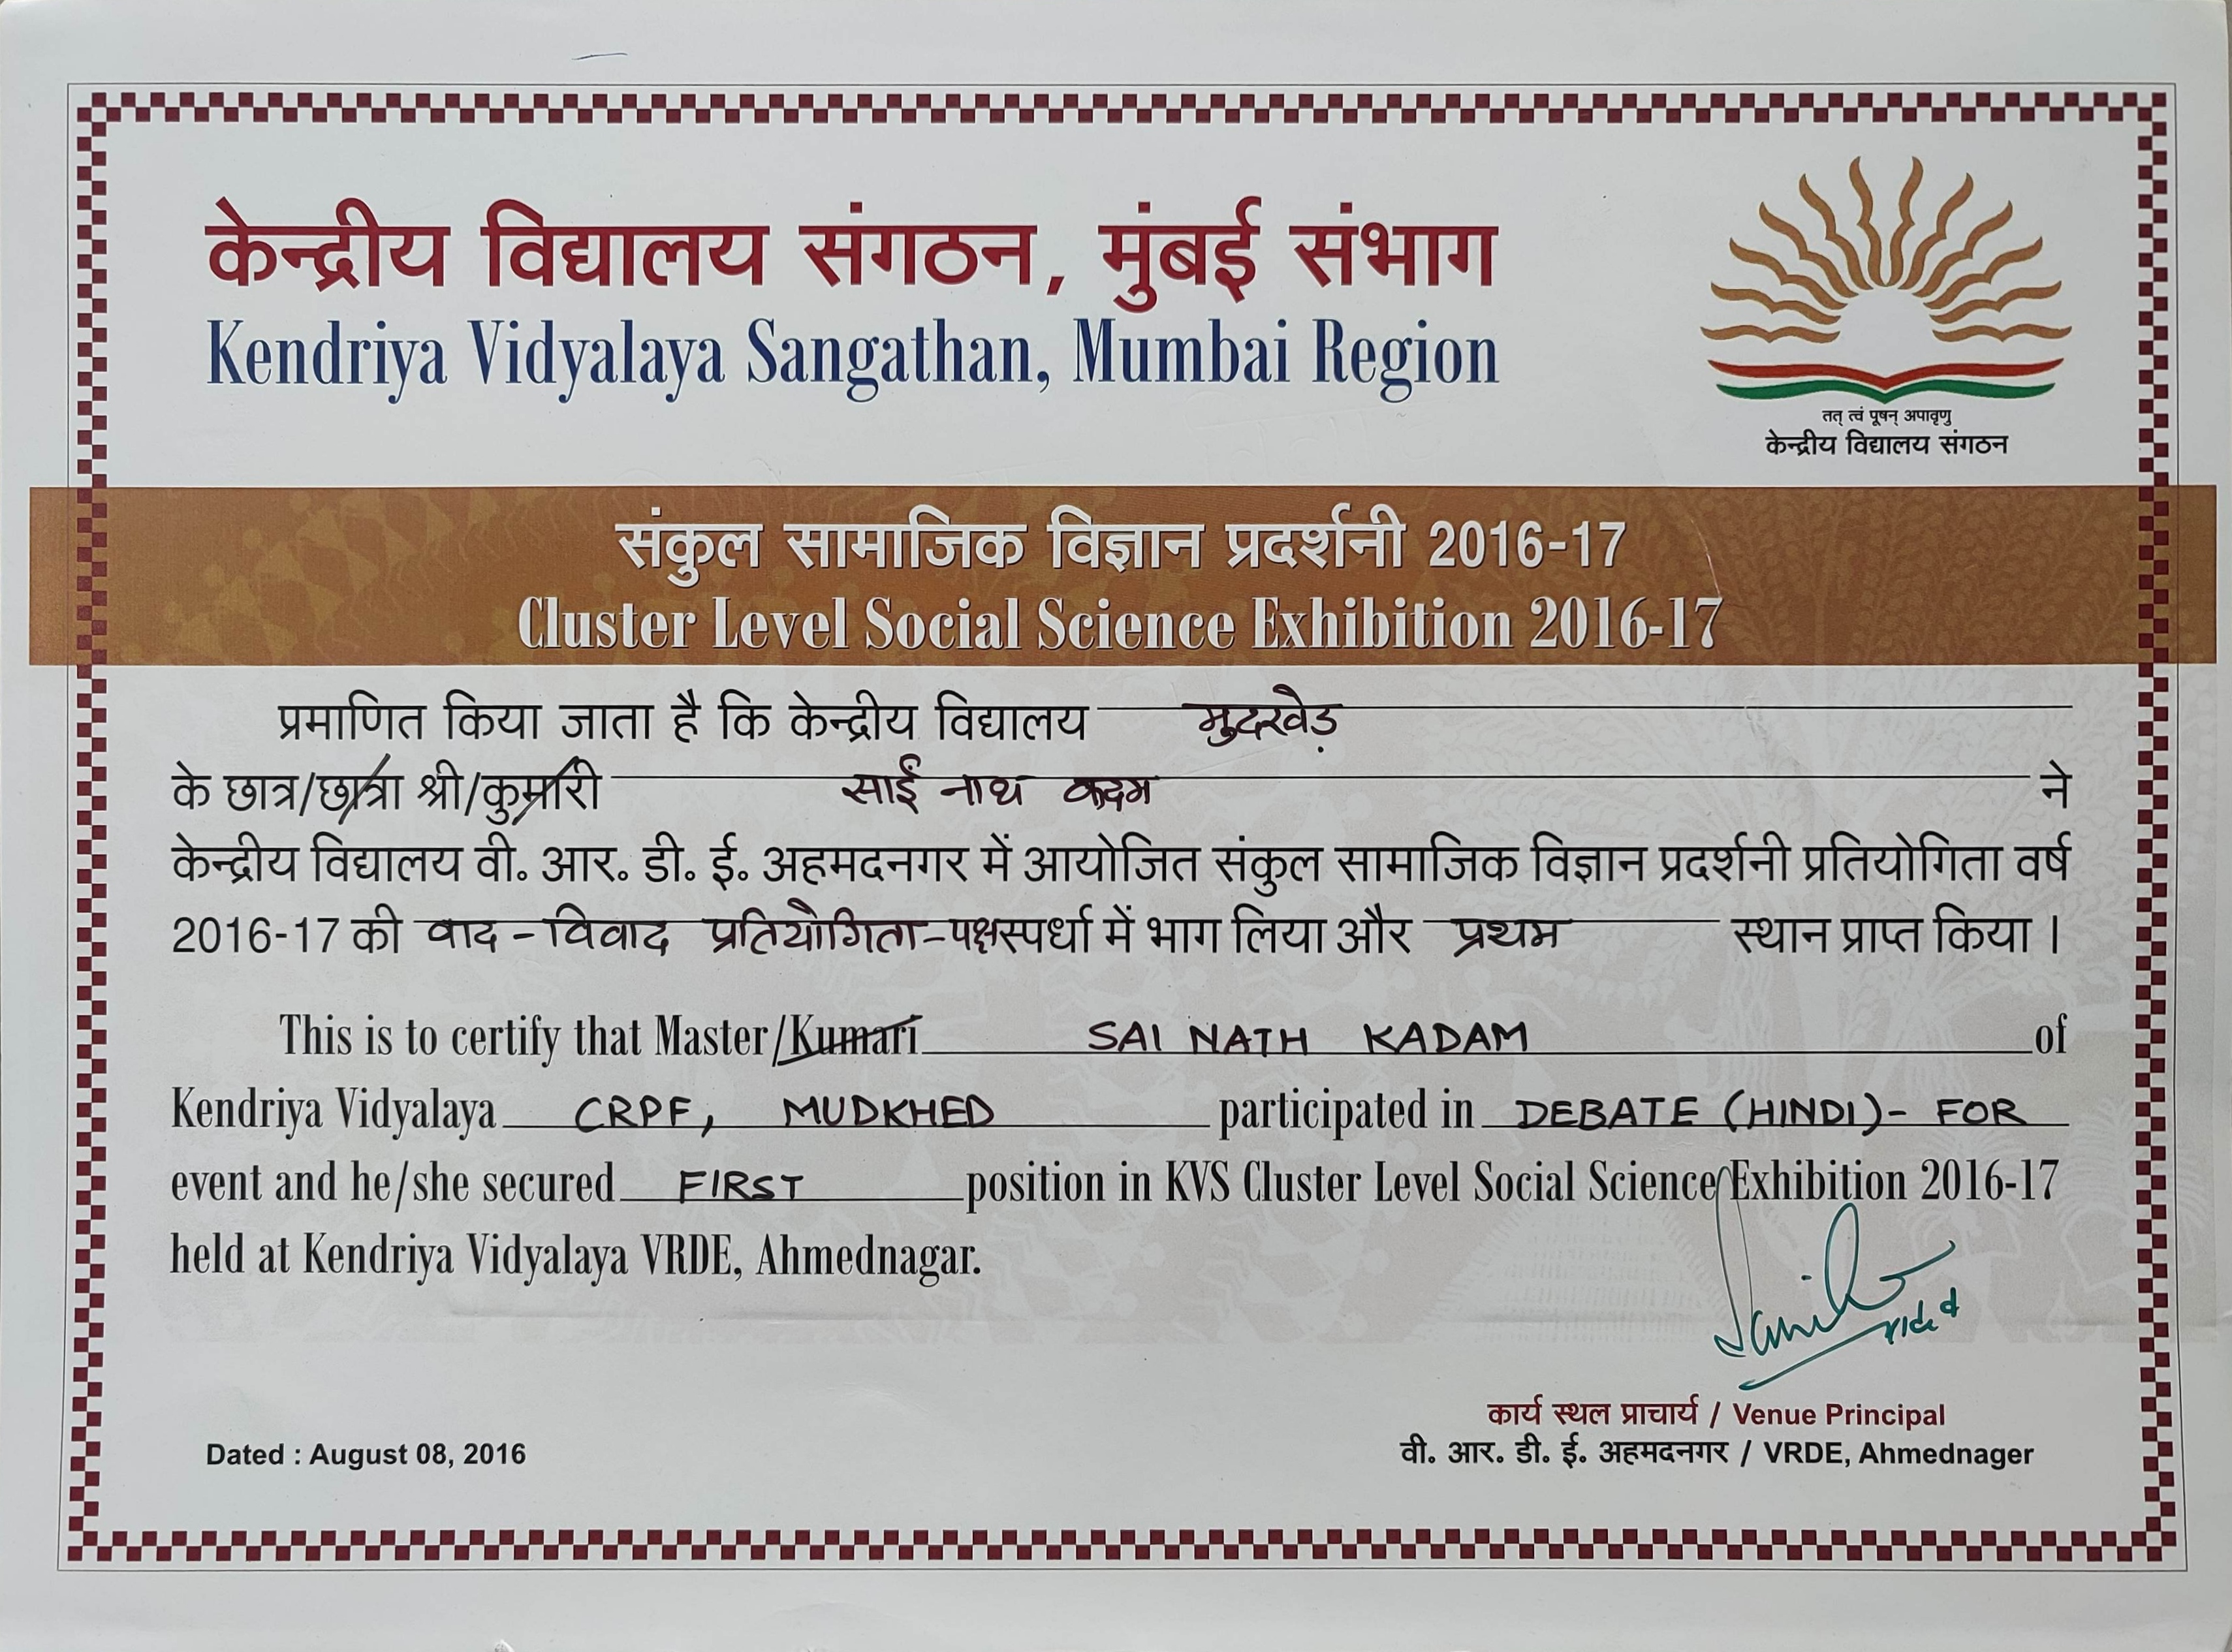 केन्द्रीय विद्यालय संगठन, मुंबई संभाग
Kendriya Vidyalaya Sangathan, Mumbai Region
तत् त्वं पूषन् अपावृणु
केन्द्रीय विद्यालय संगठन
संकुल सामाजिक विज्ञान प्रदर्शनी 2016-17
Cluster Level Social Science Exhibition 2016-17
प्रमाणित किया जाता है कि केन्द्रीय विद्यालय मुदखेड़
के छात्र/छात्रा श्री/कुमारी साईं नाथ कदम ने
केन्द्रीय विद्यालय वी. आर. डी. ई. अहमदनगर में आयोजित संकुल सामाजिक विज्ञान प्रदर्शनी प्रतियोगिता वर्ष
2016-17 की वाद-विवाद प्रतियोगिता-पक्ष स्पर्धा में भाग लिया और प्रथम स्थान प्राप्त किया ।
This is to certify that Master/Kumari SAI NATH KADAM of
Kendriya Vidyalaya CRPF, MUDKHED participated in DEBATE (HINDI)- FOR
event and he/she secured FIRST position in KVS Cluster Level Social Science Exhibition 2016-17
held at Kendriya Vidyalaya VRDE, Ahmednagar.
कार्य स्थल प्राचार्य / Venue Principal
Dated : August 08, 2016
वी. आर. डी. ई. अहमदनगर / VRDE, Ahmednager